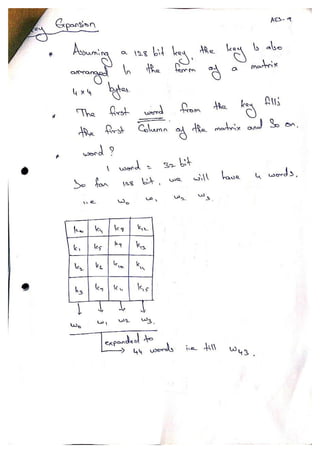 AES-9
Key Expansion
• Assuming a 128 bit key, the key is also
arranged in the form of a matrix
4x4 bytes.
• The first word from the key fills
the first Column of the matrix and So on.
• word?
1 word = 32 bit
So for 128 bit, we will have 4 words.
i.e W0 W1 W2 W3
k0 k4 k8 k12
k1 k5 k9 k13
k2 k6 k10 k14
k3 k7 k11 k15
W0 W1 W2 W3
expanded to
44 words i.e till W43.